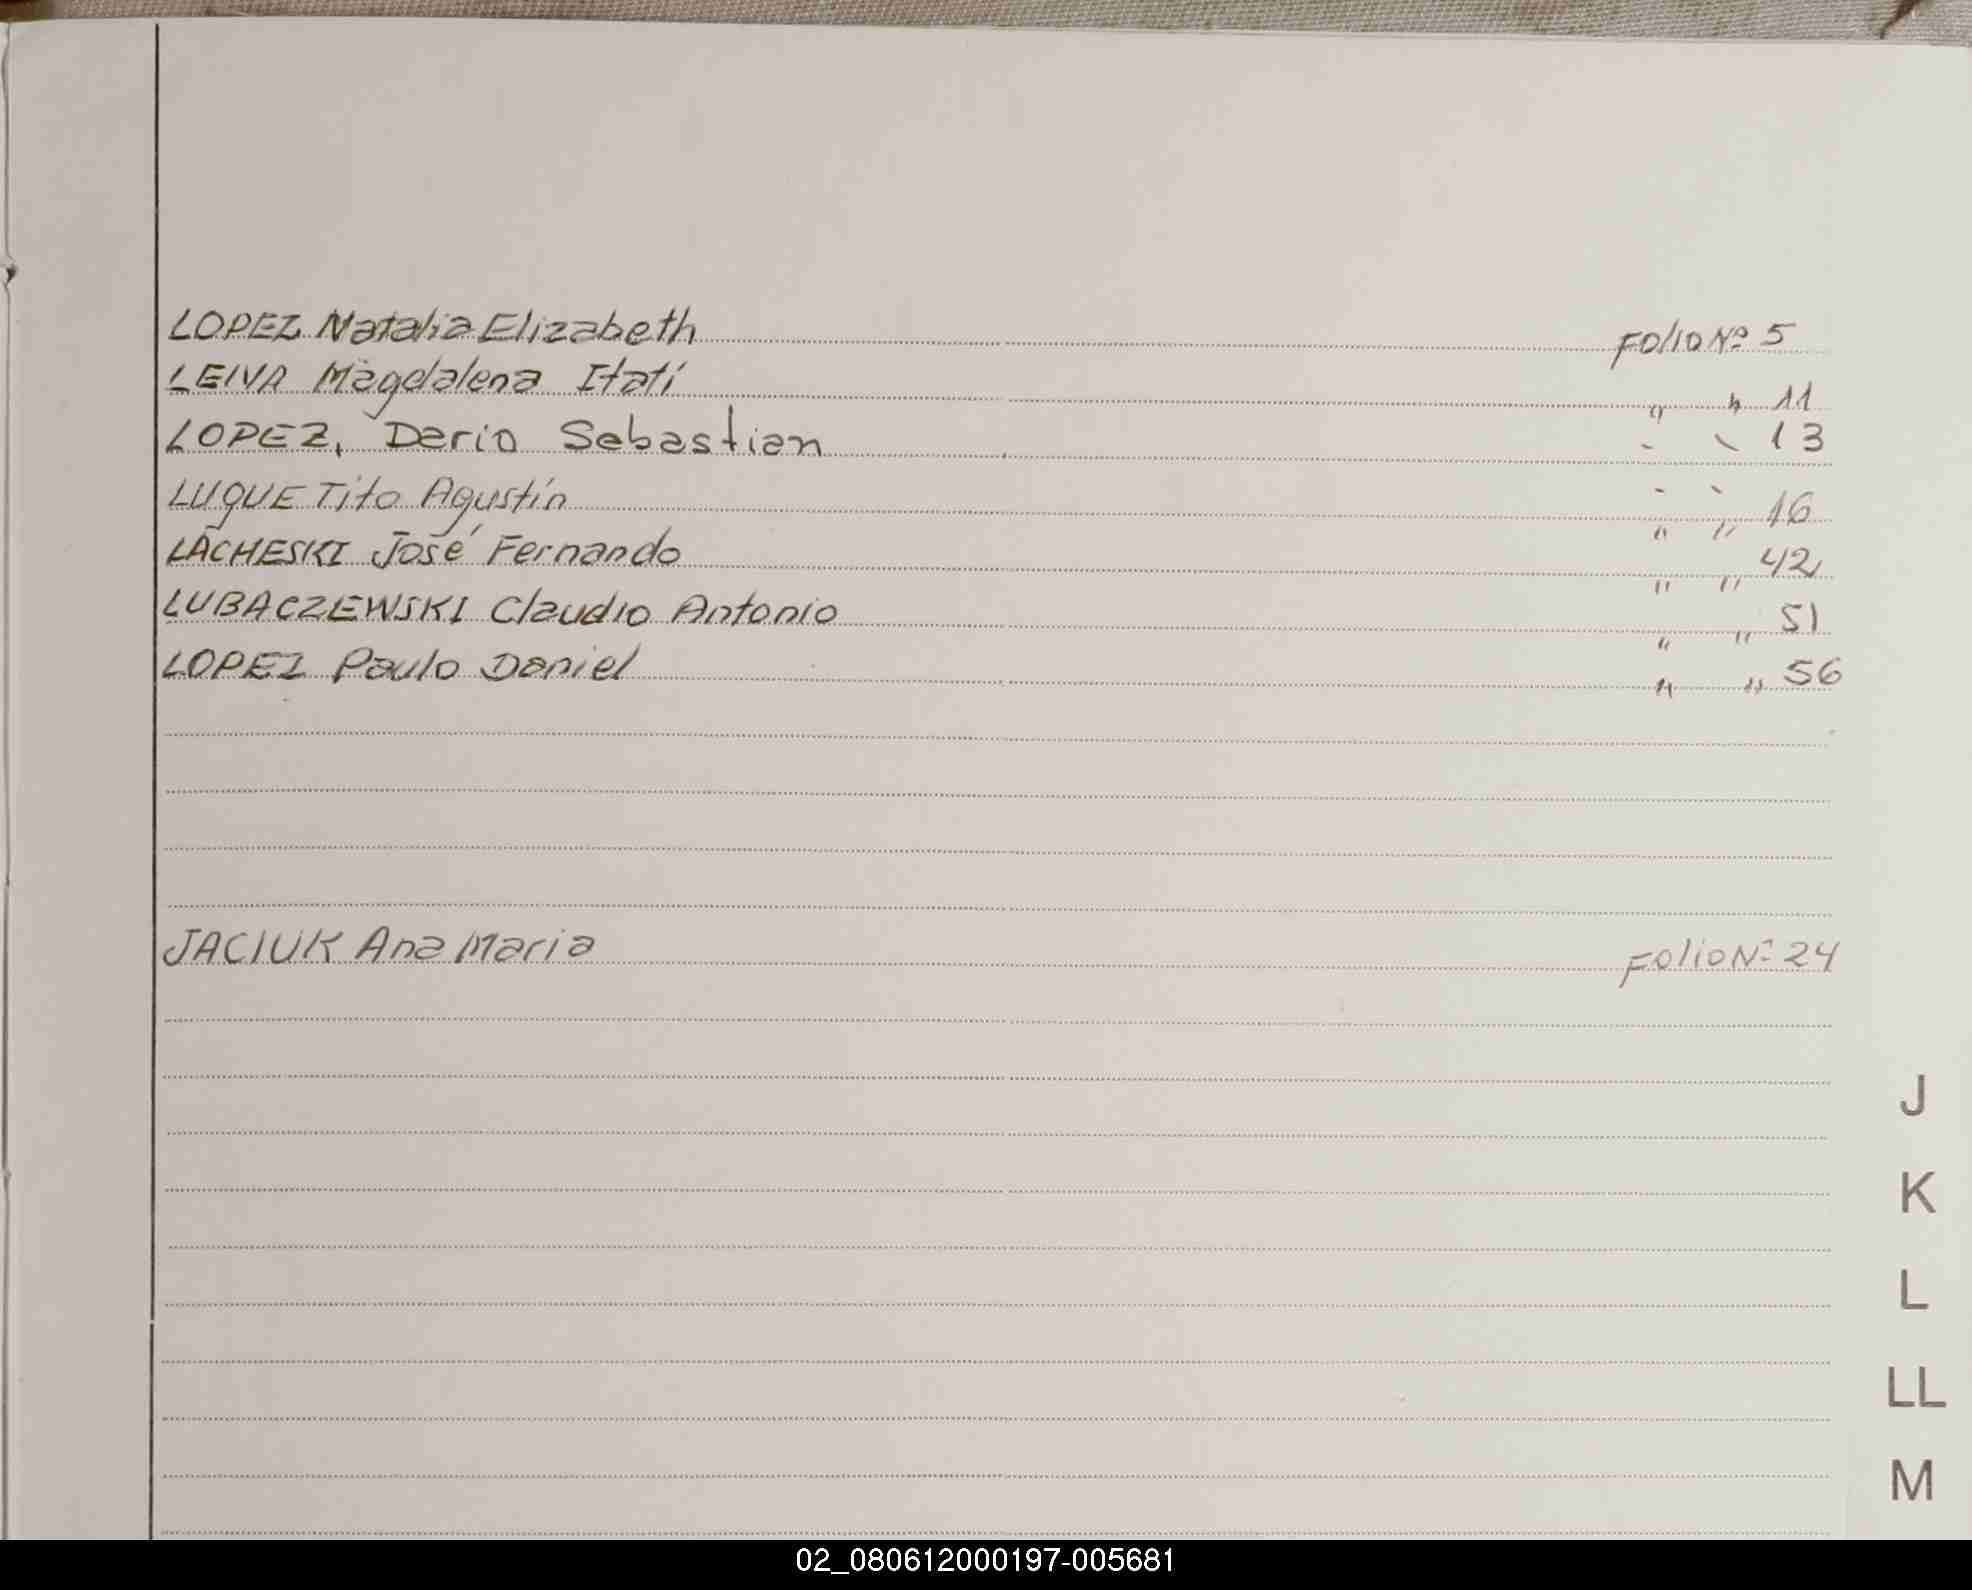 LOPEZ Natalia Elizabeth FOLIO Nº 5
LEIVA Magdalena Itatí " " 11
LOPEZ, Dario Sebastian - - 13
LUQUE Tito Agustín " " 16
LACHESKI José Fernando " " 42
LUBACZEWSKI Claudio Antonio " " 51
LOPEZ Paulo Daniel " " 56
JACIUK Ana Maria FOLIO Nº 24
J
K
L
LL
M
02_080612000197-005681